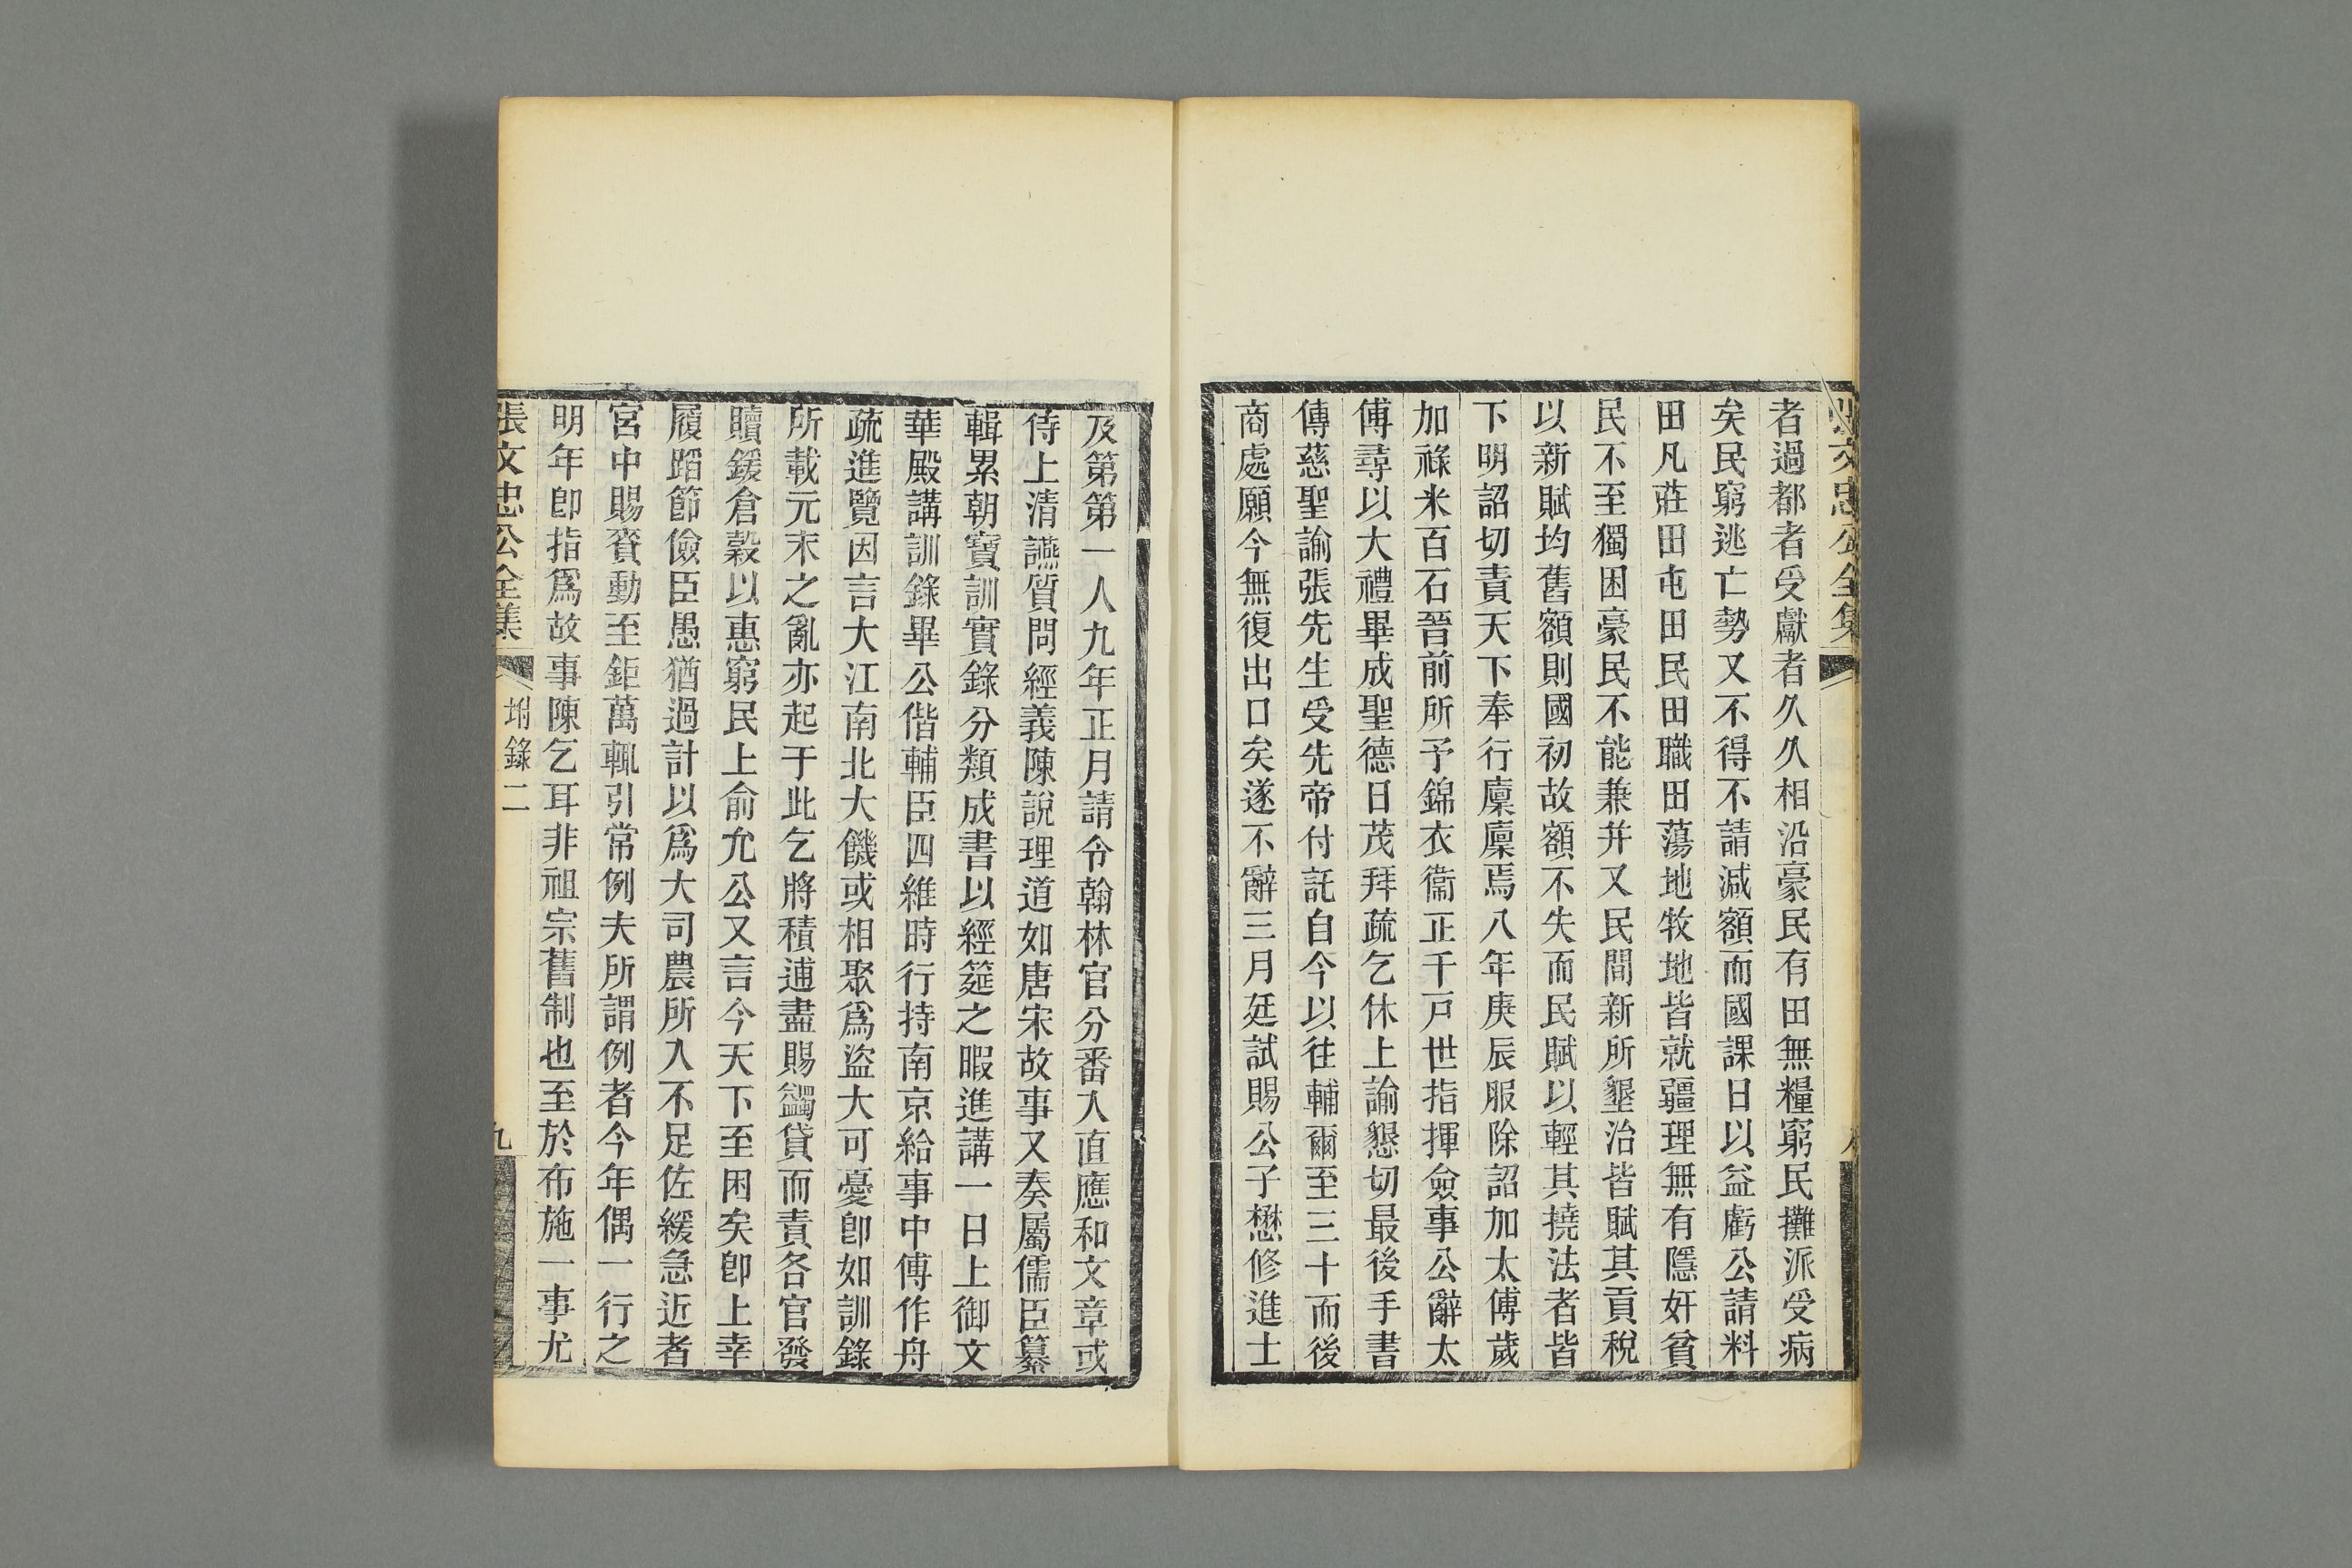 張文忠公全集
者過都者受獻者久久相沿豪民有田無糧窮民攤派受病
矣民窮逃亡勢又不得不請減額而國課日以益虧公請料
田凡莊田屯田民田職田蕩地牧地皆就疆理無有隱奸貧
民不至獨困豪民不能兼并又民間新所墾治皆賦其貢稅
以新賦均舊額則國初故額不失而民賦以輕其撓法者皆
下明詔切責天下奉行廩廩焉八年庚辰服除詔加太傅歲
加祿米百石晉前所予錦衣衞正千戸世指揮僉事公辭太
傅尋以大禮畢成聖德日茂拜疏乞休上諭懇切最後手書
傳慈聖諭張先生受先帝付託自今以往輔爾至三十而後
商處願今無復出口矣遂不辭三月廷試賜公子懋修進士
及第第一人九年正月請令翰林官分番入直應和文章或
侍上清讌質問經義陳說理道如唐宋故事又奏屬儒臣纂
輯累朝寶訓實錄分類成書以經筵之暇進講一日上御文
華殿講訓錄畢公偕輔臣四維時行持南京給事中傅作舟
疏進覽因言大江南北大饑或相聚爲盜大可憂卽如訓錄
所載元末之亂亦起于此乞將積逋盡賜蠲貸而責各官發
贖鍰倉穀以惠窮民上俞允公又言今天下至困矣卽上幸
履蹈節儉臣愚猶過計以爲大司農所入不足佐緩急近者
宮中賜賚動至鉅萬輒引常例夫所謂例者今年偶一行之
明年卽指爲故事陳乞耳非祖宗舊制也至於布施一事尤
張文忠公全集 附錄二 九